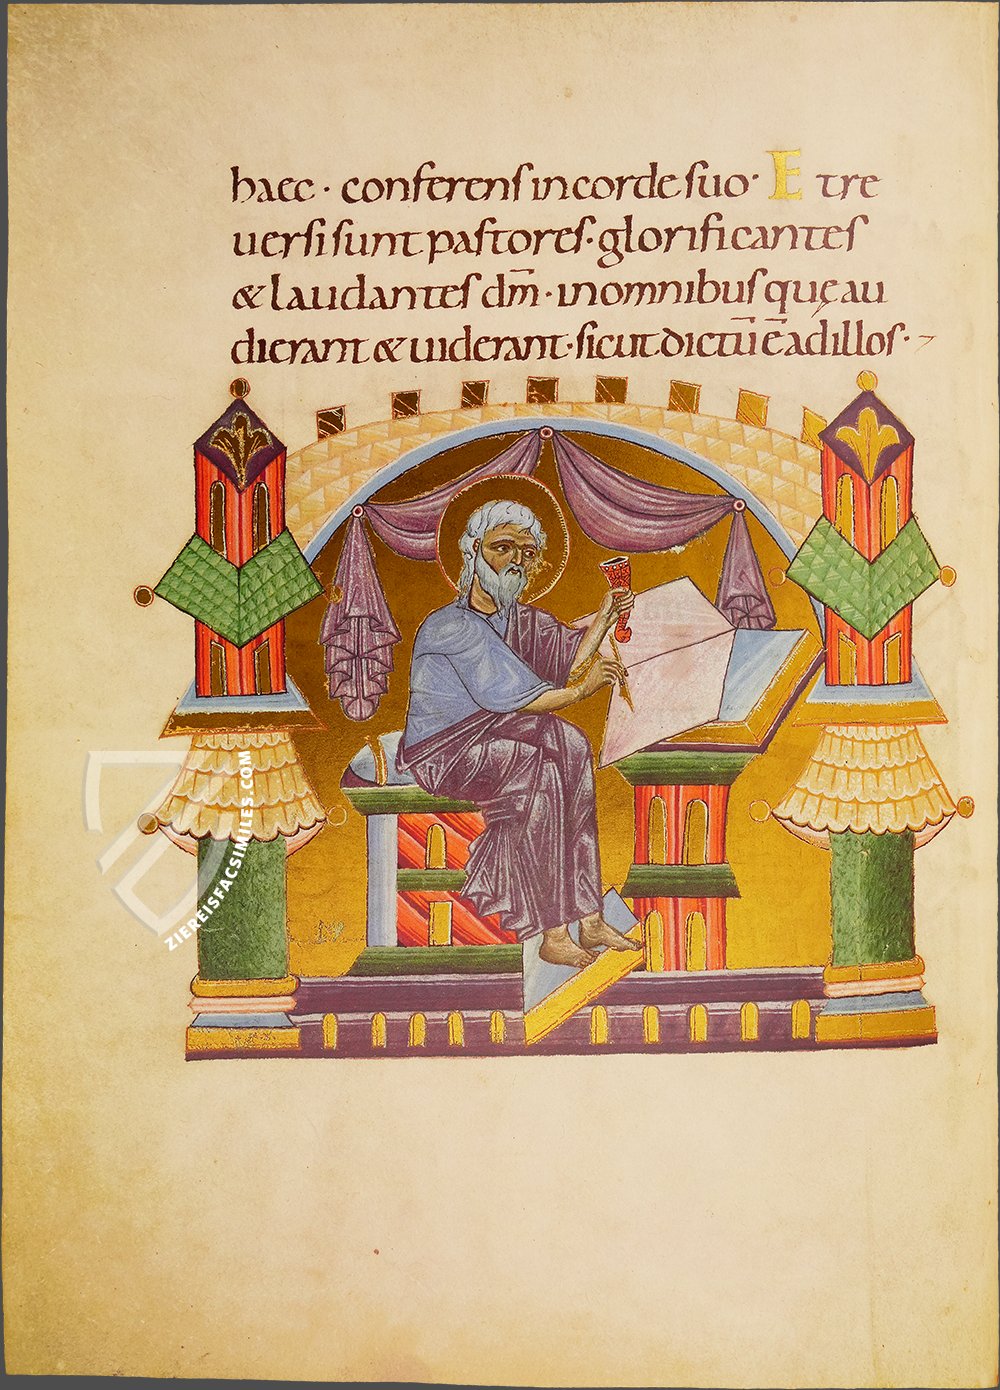 haec · conferens in corde suo · Et re
uersi sunt pastores · glorificantes
& laudantes dm̄ · in omnibus quę au
dierant & uiderant · sicut dictū ē ad illos ·
ZIEREISFACSIMILES.COM